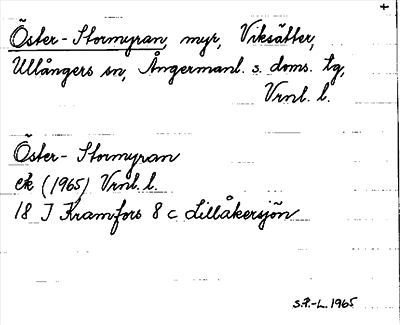 +
Öster-Stormyran, myr, Viksätter,
Ullångers sn, Ångermanl. s. doms. tg,
Vrnl. l.
Öster-Stormyran
ek (1965) Vrnl. l.
18 I Kramfors 8 c Lillåkersjön
S.P.-L. 1965